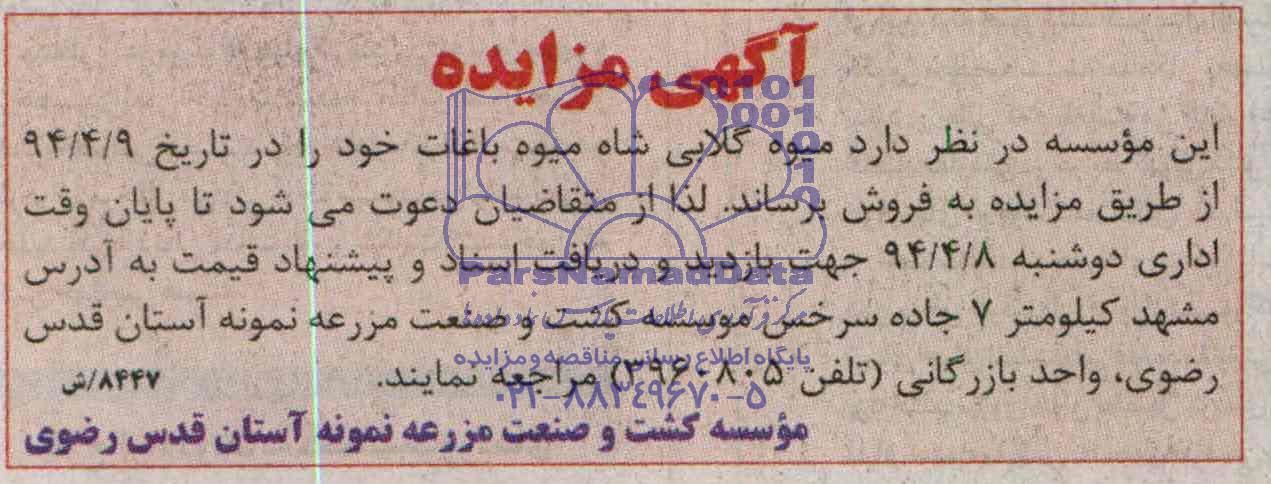 آگهی مزایده
این مؤسسه در نظر دارد میوه گلابی شاه میوه باغات خود را در تاریخ ۹۴/۴/۹
از طریق مزایده به فروش برساند. لذا از متقاضیان دعوت می شود تا پایان وقت
اداری دوشنبه ۹۴/۴/۸ جهت بازدید و دریافت اسناد و پیشنهاد قیمت به آدرس
مشهد کیلومتر ۷ جاده سرخس موسسه کشت و صنعت مزرعه نمونه آستان قدس
رضوی، واحد بازرگانی (تلفن ۳۹۶۰۸۰۵) مراجعه نمایند.
۸۴۴۷/ش
مؤسسه کشت و صنعت مزرعه نمونه آستان قدس رضوی
ParsNamadData
پایگاه اطلاع رسانی مناقصه و مزایده
۰۲۱-۸۸۳۴۹۶۷۰-۵